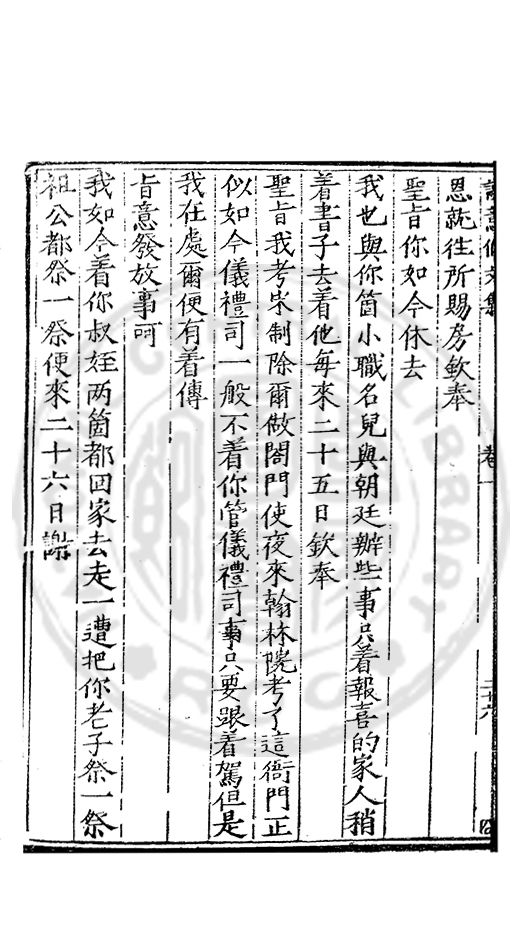 恩就徃所賜房欽奉
聖旨你如今休去
我也與你箇小職名兒與朝廷辦些事只着報喜的家人稍
着書子去着他每來二十五日欽奉
聖旨我考宋制除爾做閤門使夜來翰林院考了這衙門正
似如今儀禮司一般不着你管儀禮司事只要跟着駕但是
我在處爾便有着傳
旨意發放事呵
我如今着你叔姪两箇都回家去走一遭把你老子祭一祭
祖公都祭一祭便來二十六日謝